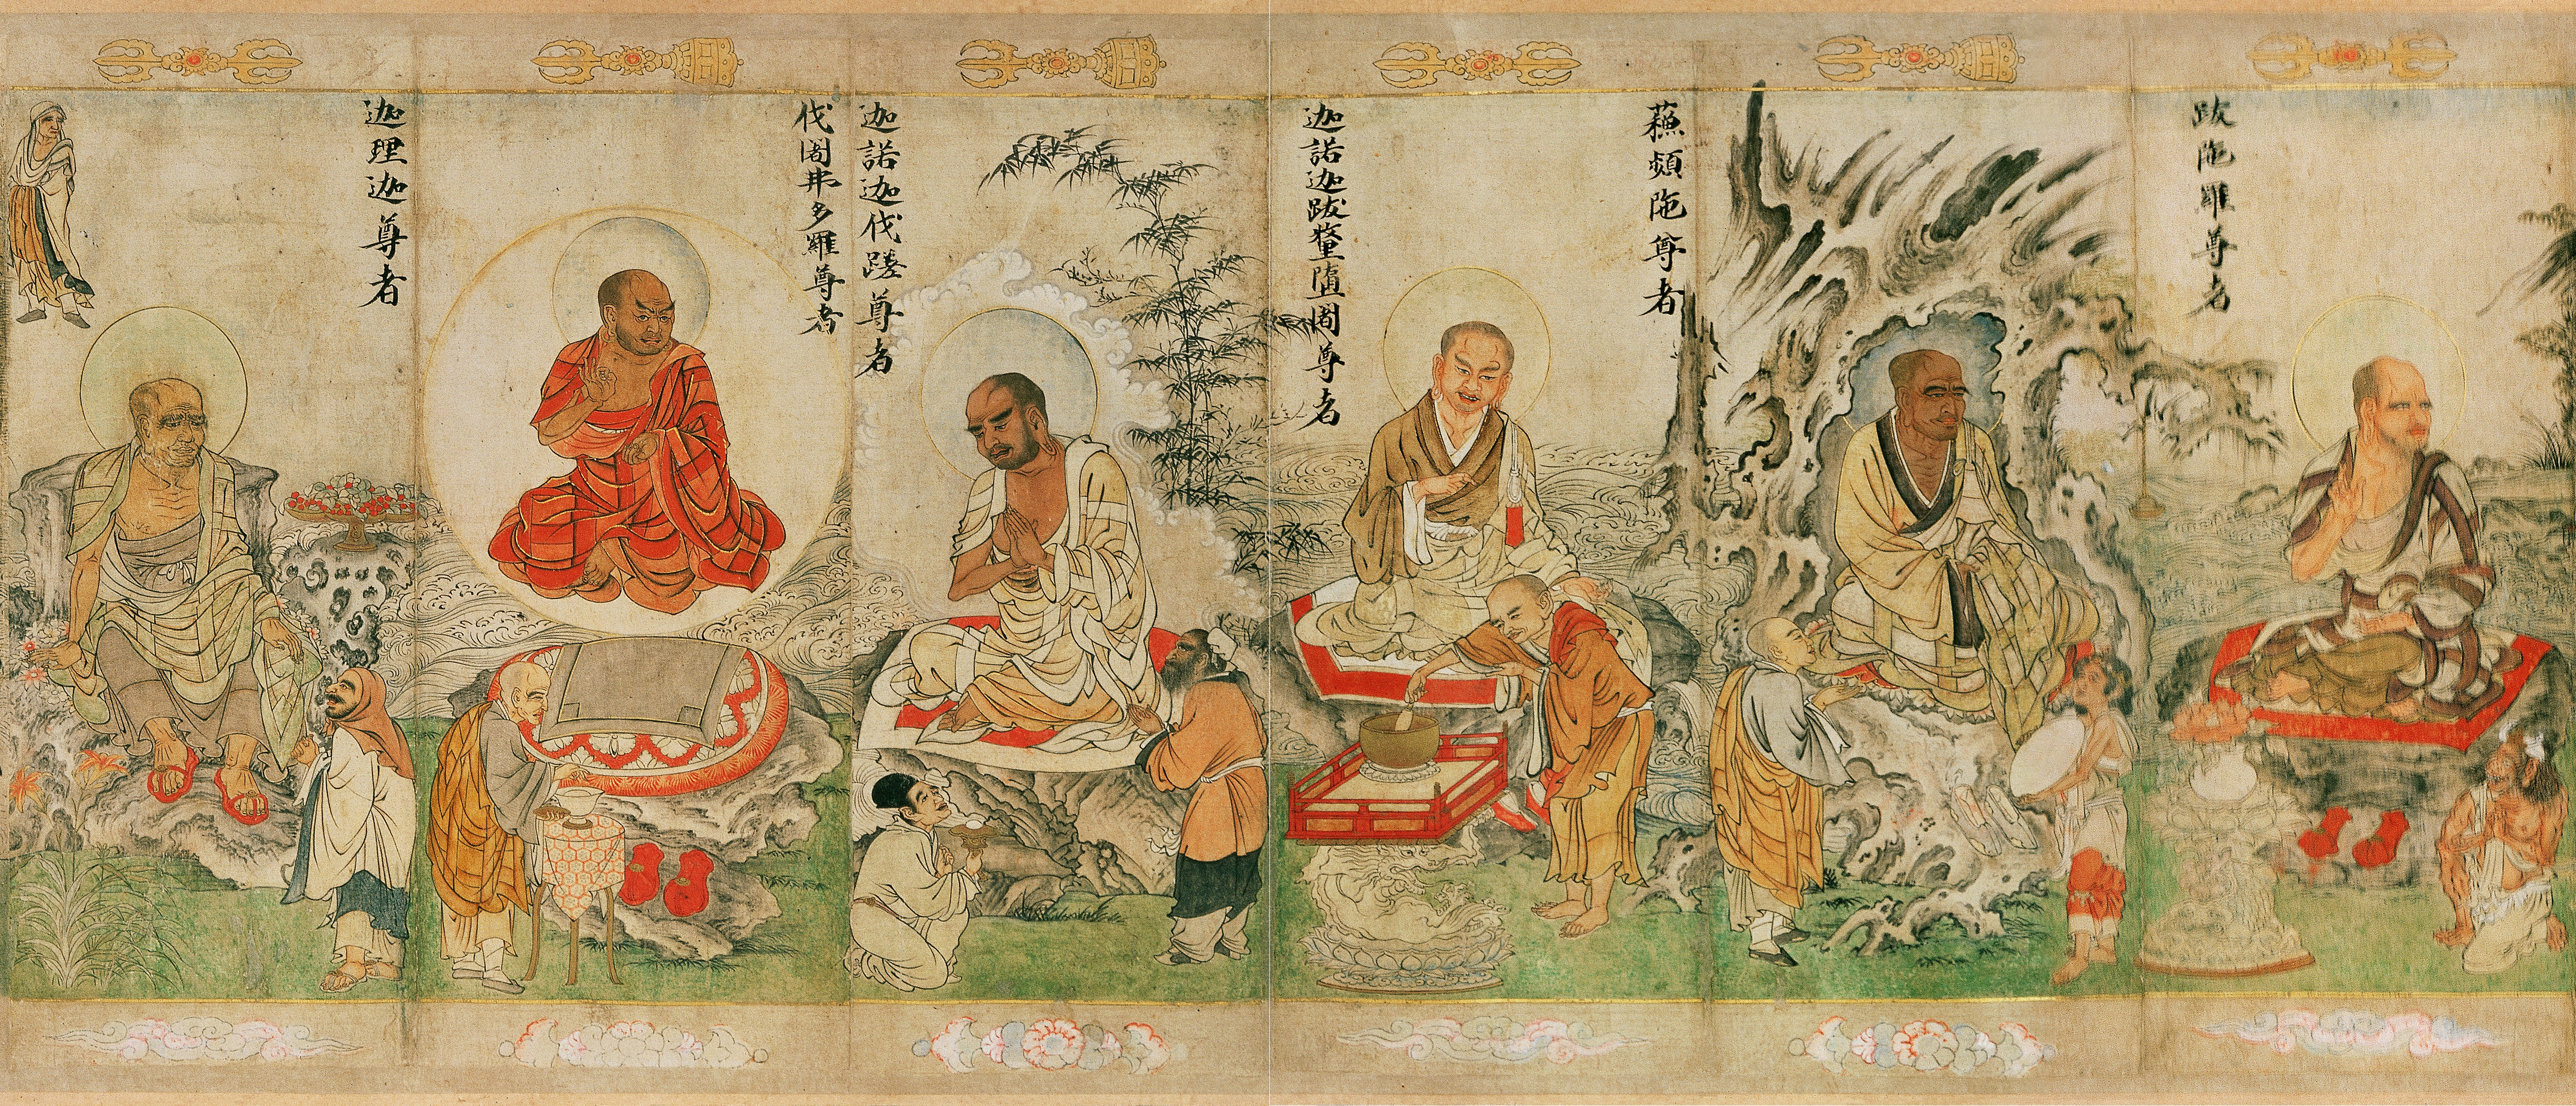 跋陁羅尊者
蘓頻陁尊者
迦諾迦跋釐墮闍尊者
迦諾迦伐蹉尊者
伐闍弗多羅尊者
迦理迦尊者